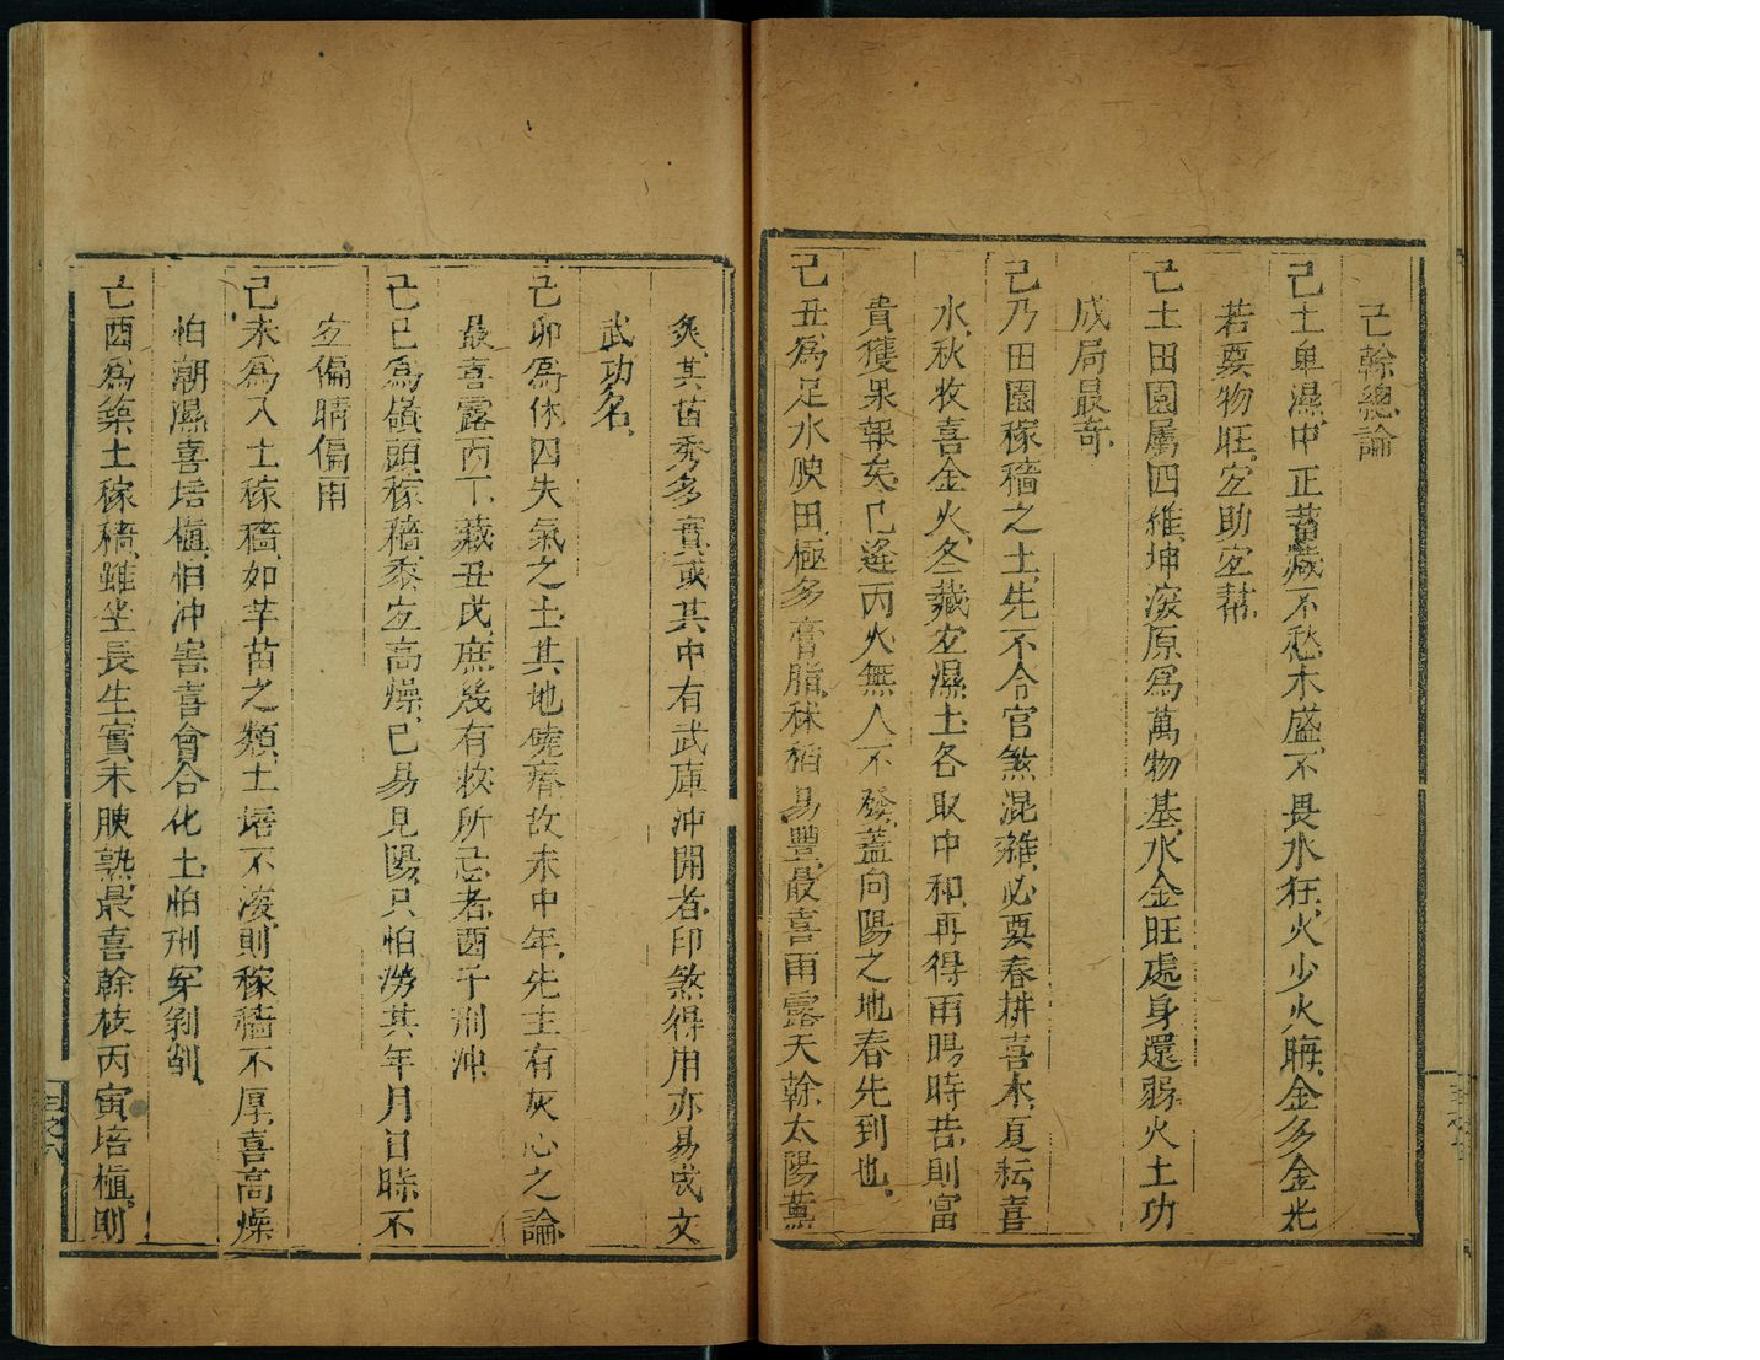 己幹總論
己土卑濕中正蓄藏不愁木盛不畏水狂火少火晦金多金光
若要物旺宜助宜幫
己土田園屬四維坤深原爲萬物基水金旺處身還弱火土功
成局最奇
己乃田園稼穡之土先不合官煞混雜必要春耕喜木夏耘喜
水秋收喜金火冬藏宜濕土各取中和再得雨暘時若則富
貴獲果報矣己逢丙火無人不發蓋向陽之地春先到也
己丑爲足水腴田極多膏脂秫稻易豐最喜雨露天幹太陽薰
炙其苗秀多實或其中有武庫沖開者印煞得用亦易成文
武功名
己卯爲休囚失氣之土其地磽瘠故未中年先主有灰心之論
最喜露丙丁藏丑戌庶幾有救所忌者酉子刑沖
己巳爲嶺頭稼穡黍宜高燥已易見陽只怕澇其年月日時不
宜偏晴偏雨
己未爲入土稼穡如芋苗之類土培不深則稼穡不厚喜高燥
怕潮濕喜培植怕沖害喜會合化土怕刑穿剝削
己酉爲築土稼穡雖坐長生實未腴熟最喜幹枝丙寅培植則